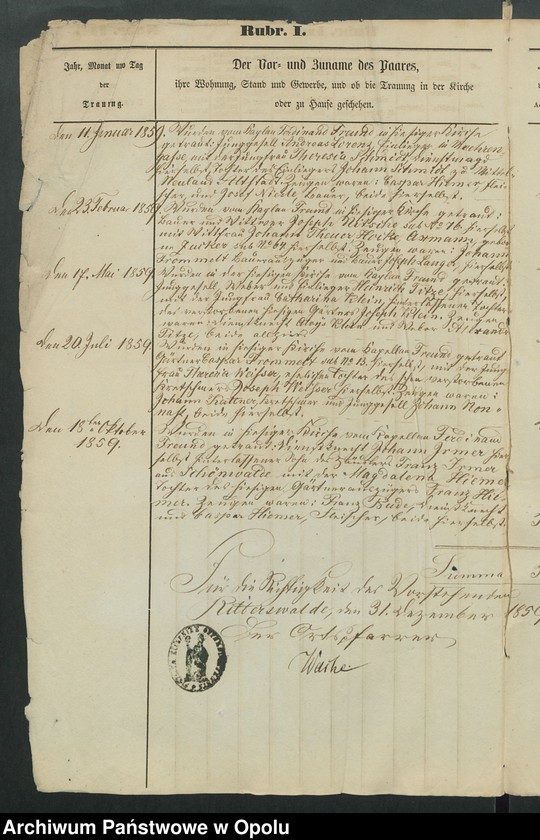 Rubr. I.
Jahr, Monat und Tag
der
Trauung.
Der Vor- und Zuname des Paares,
ihre Wohnung, Stand und Gewerbe, und ob die Trauung in der Kirche
oder zu Hause geschehen.
Den 11. Januar 1859.
Wurden vom Kaplan Ferdinand Freund in hiesiger Kirche
getraut: Junggesell Andreas Lorenz, Einlieger in Mochren
gasse, mit der Jungfrau Theresia Schmidt, Dienstmagd
hierselbst, Tochter des Einliegers Johann Schmidt zu Mittel
Neuland Altstadt. Zeugen waren: Caspar Hiemer, Flei
scher, und Josef Nickle, Bauer, beide hierselbst.
Den 23. Februar 1859
Wurden vom Kaplan Freund in hiesiger Kirche getraut:
Bauer und Wittwer Joseph Nitsche sub No 16 hierselbst
mit Wittfrau Johanna Theuer Hocke, Axmann, gebor
ne Zucker sub No 64 hierselbst. Zeugen waren: Johann
Frommelt Bauerauszügler und Joseph Langer, hierselbst.
Den 17. Mai 1859.
Wurden in der hiesigen Kirche vom Kaplan Freund getraut:
Junggesell, Weber und Einlieger Heinrich Titze, hierselbst,
mit der Jungfrau Catharina Klein, hinterlassener Tochter
des verstorbenen hiesigen Gärtners Joseph Klein. Zeugen
waren: Dienstknecht Aloys Klein und Weber Alexander
Titze, beide allhier.
Den 20. Juli 1859
Wurden in hiesiger Kirche vom Kapellan Freund getraut:
Gärtner Caspar Frommelt sub No 13. hierselbst, mit der Jung
frau Theresia Weisser, ehelichen Tochter des schon verstorbenen
Kretschmers Joseph Weisser hierselbst. Zeugen waren:
Johann Kuttner, Kretschmer und Junggesell Johann Mon
nast, beide hierselbst.
Den 18ten Oktober
1859.
Wurden in hiesiger Kirche vom Kapellan Ferdinand
Freund getraut: Dienstknecht Johann Irmer hier
selbst, hinterlassener Sohn des Häuslers Franz Irmer
aus Schönwalde mit der Magdalena Hiemer
Tochter des hiesigen Gärtnerauszügers Franz Hie
mer. Zeugen waren: Franz Bude, Dienstknecht
und Caspar Hiemer, Fleischer, beide hierselbst.
Summa
Für die Richtigkeit des Vorstehenden
Ritterswalde, den 31. Dezember 1859
Der Ortspfarrer
Wache
Archiwum Państwowe w Opolu